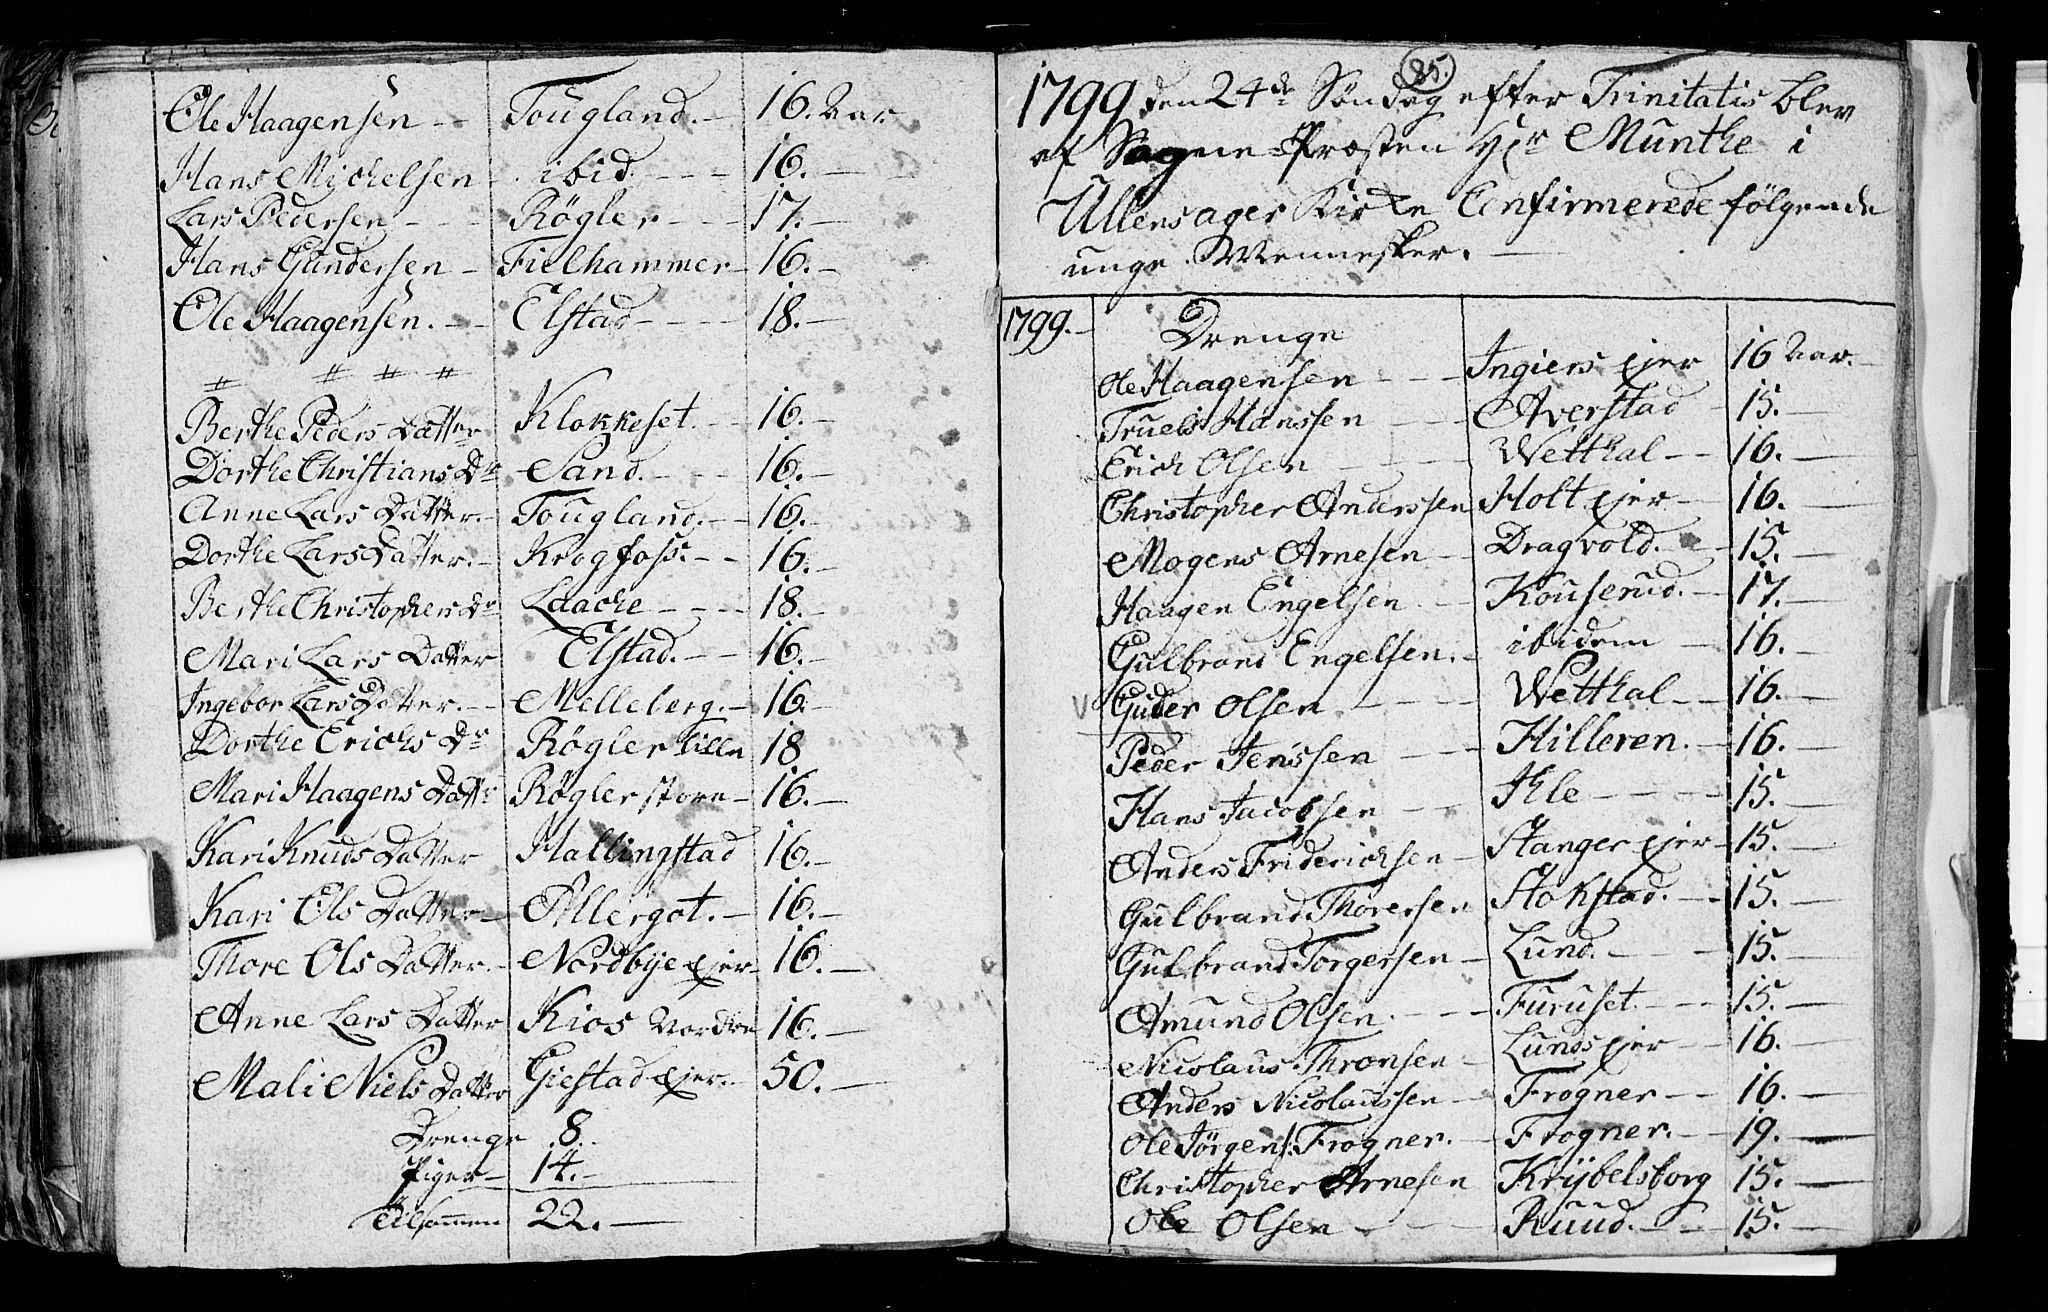 Ole Haagensen - - Tougland. - 16. Aar
Hans Mickelsen - ibid. - - - 16. -
Lars Pedersen - - - Røgler - - - 17. -
Hans Gundersen - Fielhammer - 16. -
Ole Haagensen. - - Elstad - - - - 18. -
Berthe Peders Datter Klokkeset. - - 16. -
Dorthe Christians Dr Sand. - - - 16. -
Anne Lars Datter. - Tougland. - - 16. -
Dorthe Lars Datter. - Krogfoss. - - 16. -
Berthe Christophers Dr Laache - - - 18. -
Mari Lars Datter Elstad. - - - 16. -
Ingebor Lars Datter. - - Melleberg. - 16. -
Dorthe Erichs Dr Røgler lille 18
Mari Haagens Dattr Røgler store - 16. -
Kari Knuds Datter Hallingstad 16. -
Kari Ols Datter - Allergot. - 16. -
Thore Ols Datter. - Nordbye ejer - 16. -
Anne Lars Datter Kios Nordre 16. -
Mali Niels Datter Giestad ejer. - 50. -
Drenge 8.
Piger - 14. -
Tilsammen 22. -
85.
1799 den 24de Søndag efter Trinitatis blev
af Sogne-Præsten Hr Munthe i
Ullensager Kirke Confirmerede følgende
unge Mennesker. -
1799. - Drenge
Ole Haagensen - - - Ingiers ejer 16 Aar. -
Truels Hanssen - - Averstad - 15. -
Erich Olsen - - - - Wetthal - - 16. -
Christopher Anderssen Holt ejer - 16. -
Mogens Arnesen - - Dragvold. - - 15. -
Haagen Engelsen. - - Kouserud. - 17. -
Gulbrand Engelsen. - ibidem - 16. -
Guder Olsen - - - - Wetthal - - 16. -
Peder Jenssen - - Hilleren. - 16. -
Hans Jacobsen - - Ihle - - - - 15. -
Anders Friderichsen - Stanger ejer - 15. -
Gulbrand Thorersen Stokstad. - - 15. -
Gulbrand Torgersen - Lund. - - - 15. -
Amund Olsen. - - - Furuset. - - - 15. -
Nicolaus Thronsen - Lunds ejer - - 16. -
Anders Nicolaussen - - Frogner - - 16. -
Ole Jørgens: Frogner. - Frogner. - - 19. -
Christopher Arnesen Krybelsborg 15. -
Ole Olsen - - - - Ruud. - - - 15. -